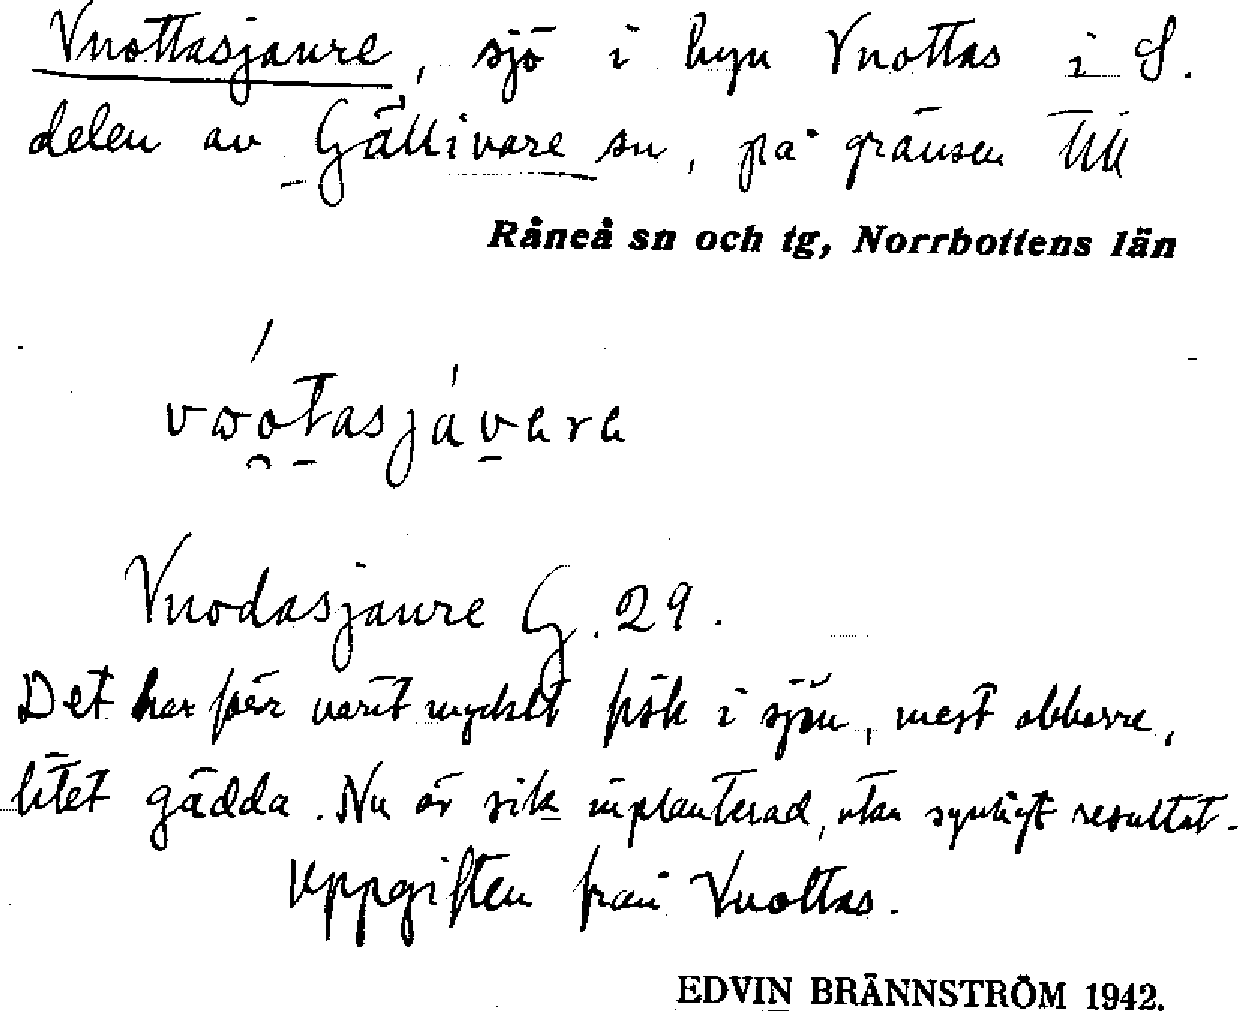 Vuottasjaure, sjö i byn Vuottas i S.
delen av Gällivare sn, på gränsen till
Råneå sn och tg, Norrbottens län
vωo̯tasjávere
Vuodasjaure G. 29.
Det har förr varit mycket fisk i sjön, mest abborre,
litet gädda. Nu är sik inplanterad, utan synligt resultat.
Uppgiften från Vuottas.
EDVIN BRÄNNSTRÖM 1942.